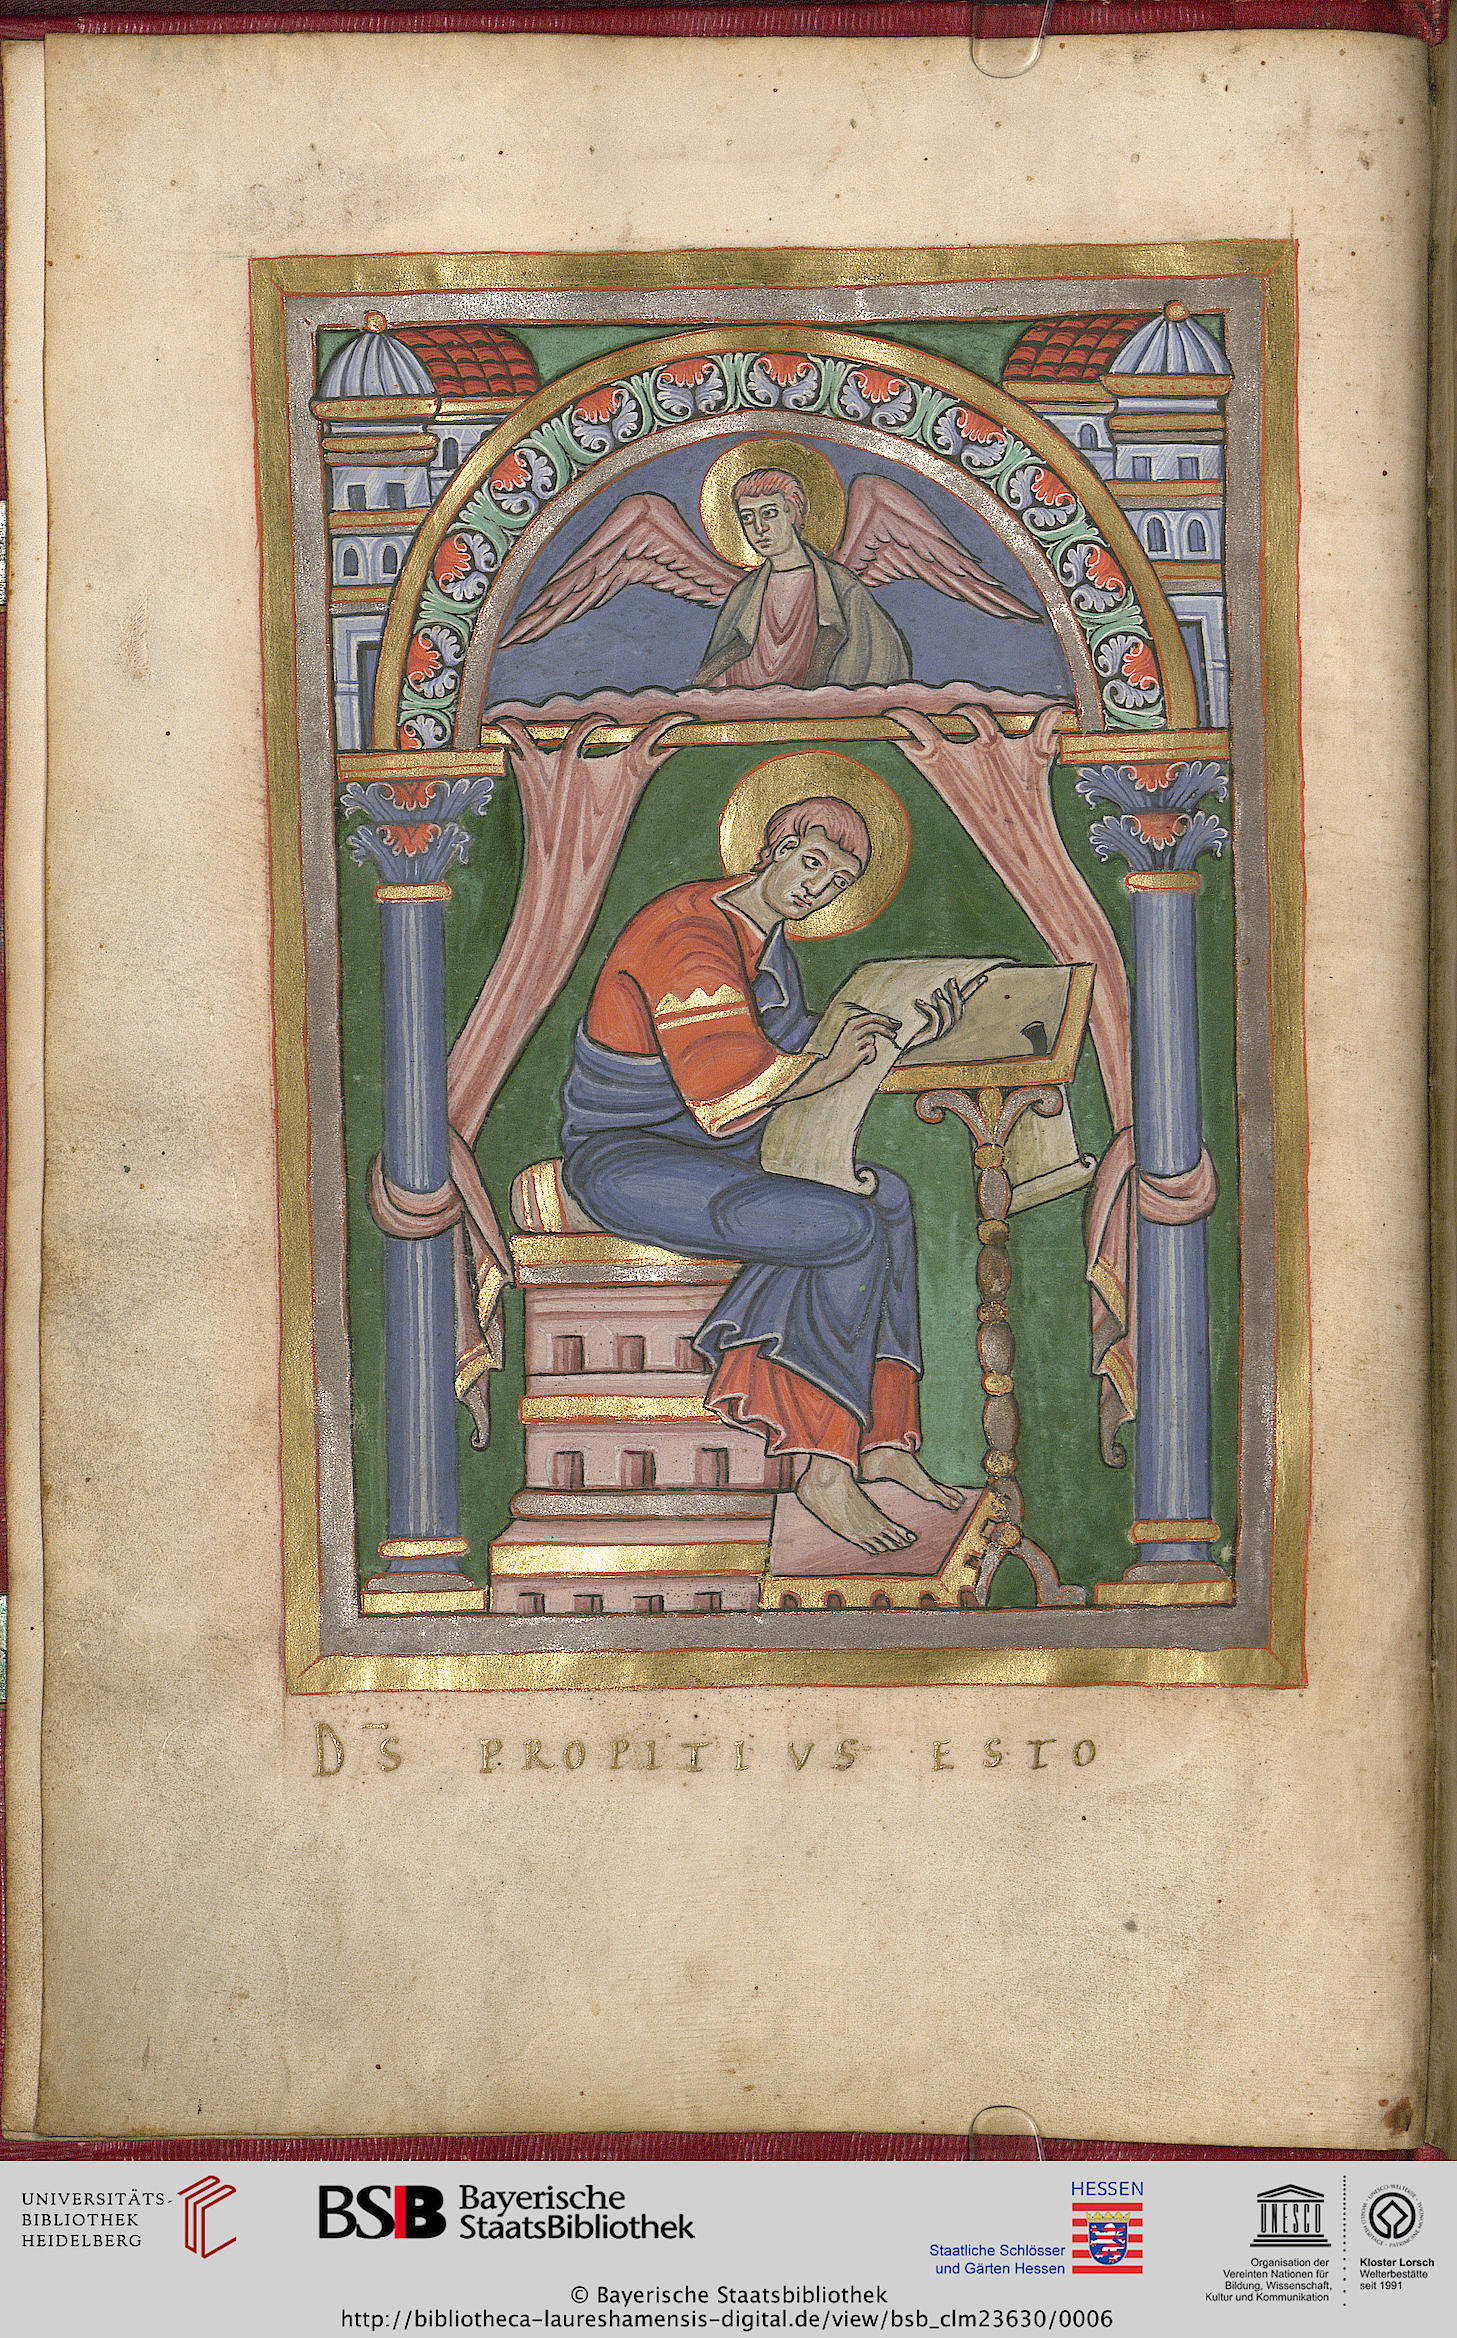 D̄S PROPITIVS ESTO
UNIVERSITÄTS-
BIBLIOTHEK
HEIDELBERG
BSB Bayerische
StaatsBibliothek
HESSEN
Staatliche Schlösser
und Gärten Hessen
UNESCO
Organisation der
Vereinten Nationen für
Bildung, Wissenschaft,
Kultur und Kommunikation
Kloster Lorsch
Welterbestätte
seit 1991
© Bayerische Staatsbibliothek
http://bibliotheca-laureshamensis-digital.de/view/bsb_clm23630/0006